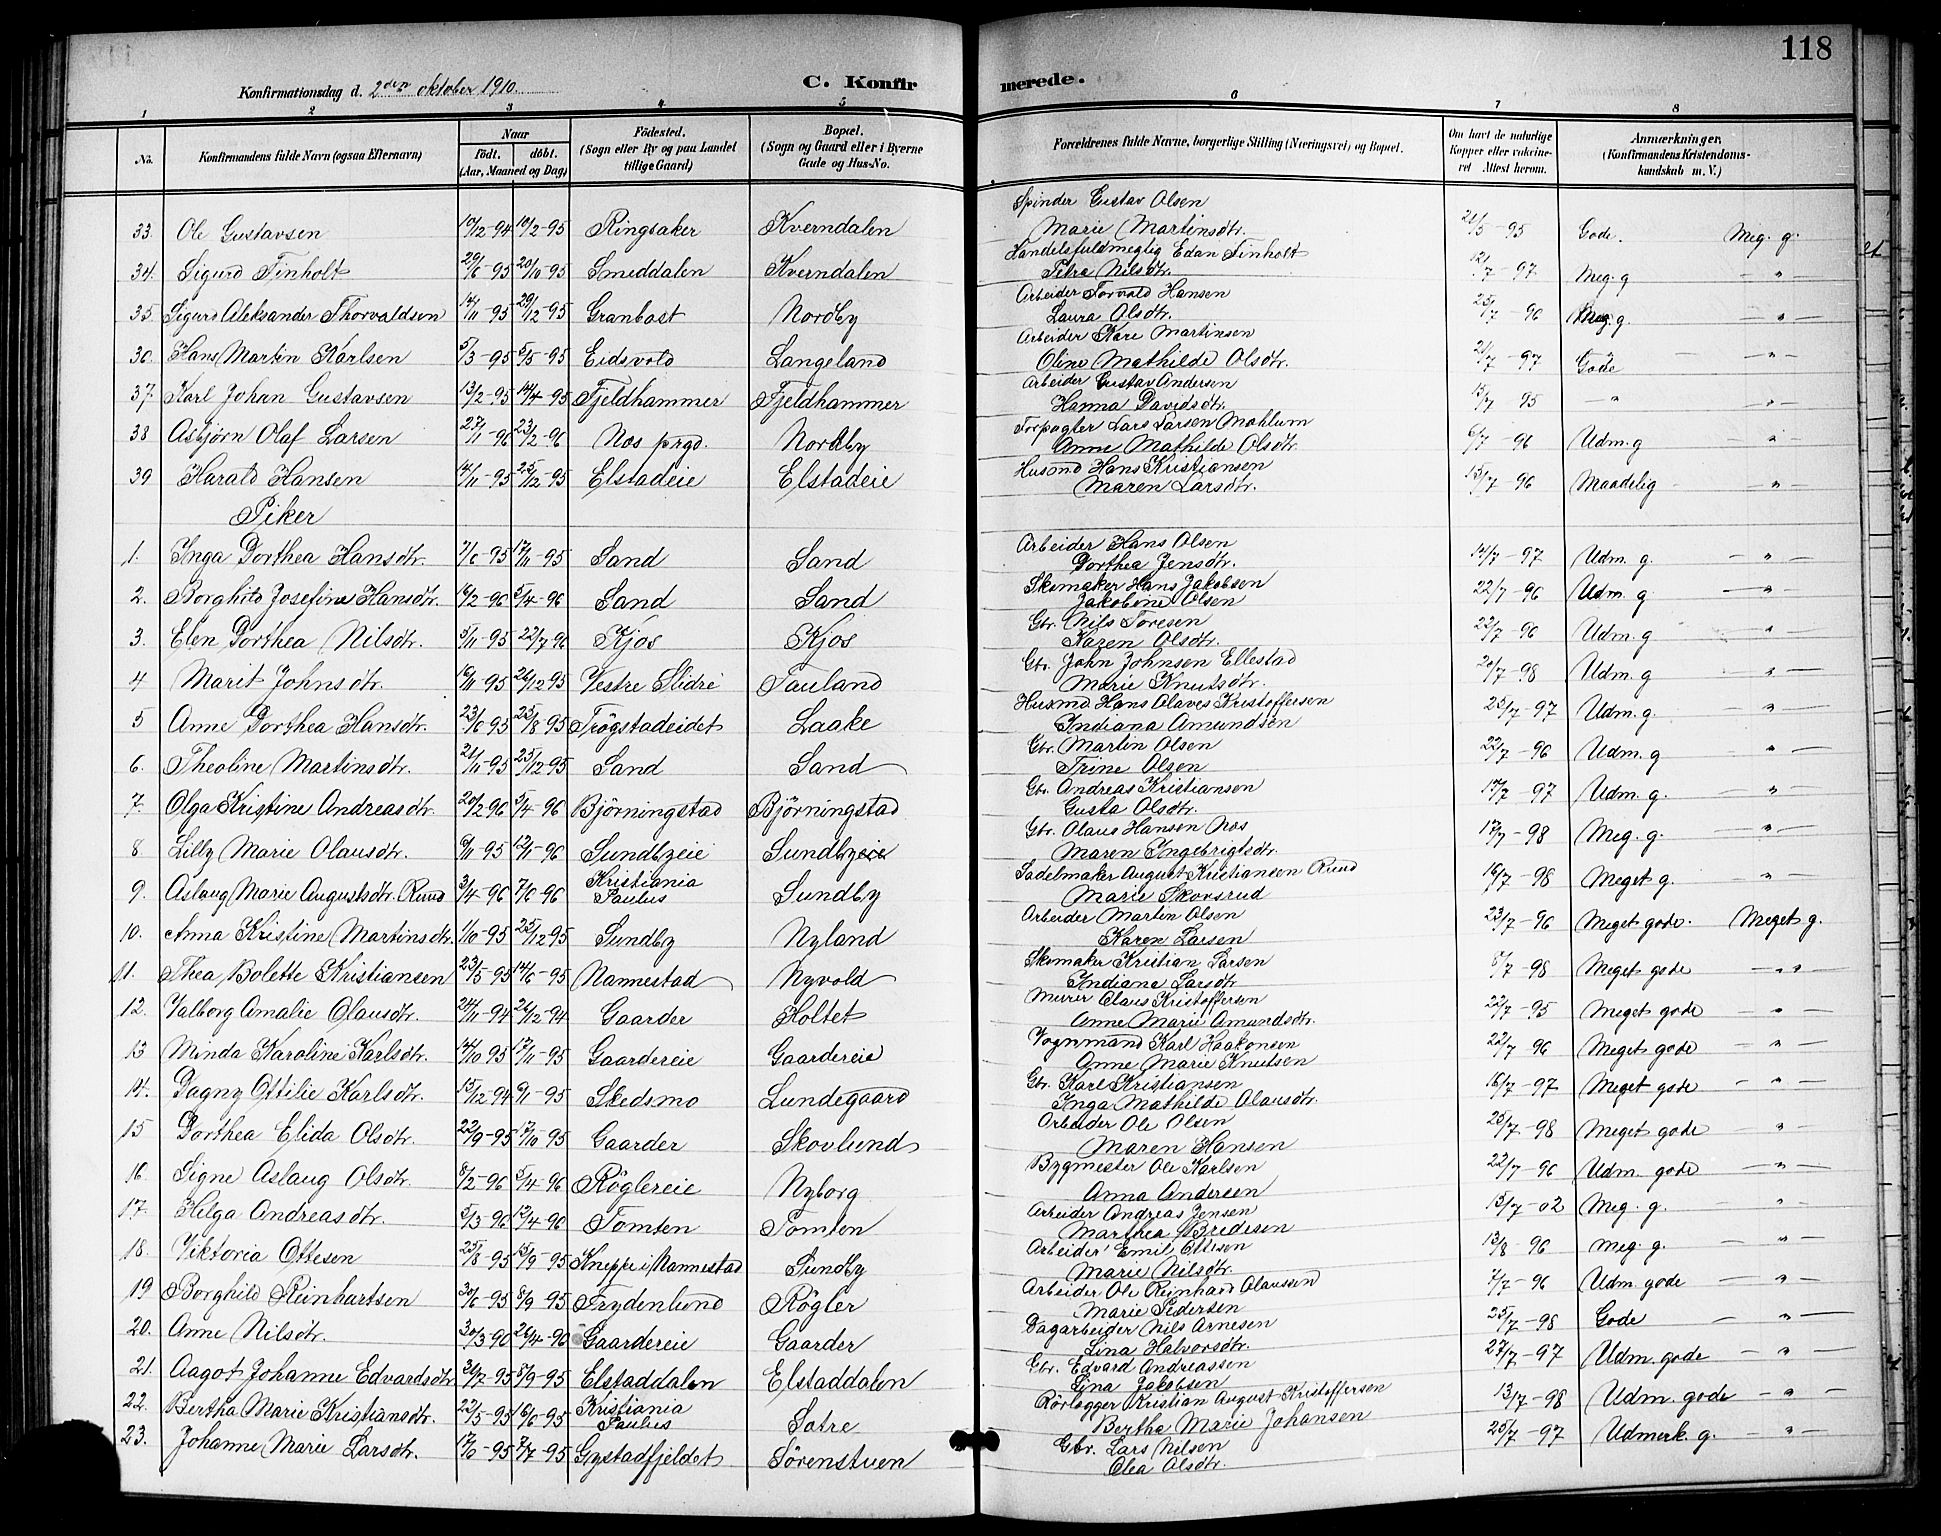 118
Konfirmationsdag d. 2den oktober 1910. C. Konfirmerede.
1 2 3 4 5 6 7 8
No. Konfirmandens fulde Navn (ogsaa Efternavn) Naar födt. döbt. (Aar, Maaned og Dag) Födested. (Sogn eller By og paa Landet tillige Gaard) Bopæl. (Sogn og Gaard eller i Byerne Gade og Hus-No. Forældrenes fulde Navne, borgerlige Stilling (Næringsvei) og Bopæl. Om havt de naturlige Kopper eller vaccineret Attest herom. Anmærkninger, (Konfirmandens Kristendomskundskab m. V.)
33. Ole Gustavsen 10/12-94 10/2-95 Ringsaker Kverndalen Spinder Gustav Olsen Marie Martinsdtr. 21/5-95 Gode. Meg. g.
34. Sigurd Finholt 29/6-95 20/10-95 Smeddalen Kverndalen Handelsfuldmegtig Edan Finholt Petra Nilsdtr. 12/7-97 Meg. g — " —
35. Sigurd Aleksander Thorvaldsen 14/11-95 29/12-95 Granbost Nordby Arbeider Torvald Hansen Laura Olsdtr. 25/7-96 Meg. g. — " —
36. Hans Martin Karlsen 5/3-95 5/5-95 Eidsvold Langeland Arbeider Kare Martinsen Oline Mathilde Olsdtr. 21/7-97 Gode — " —
37. Karl Johan Gustavsen 13/2-95 14/4-95 Fjeldhammer Fjeldhammer Arbeider Gustav Andersen Hanna Davidsdtr. 15/7-95 — " — — " —
38 Asbjörn Olaf Larsen 27/11-96 23/2-96 Nos prgd. Nordby Forpagter Lars Larsen Mohlum Anne Mathilde Olsdtr. 6/7-96 Udm. g — " —
39 Harald Hansen 14/11-95 25/12-95 Elstadeie Elstadeie Husmd Hans Kristiansen Maren Larsdtr. 15/7-96 Maadelig — " —
Piker
1. Inga Dorthea Hansdtr. 7/6-95 17/11-95 Sand Sand Arbeider Hans Olsen Dorthea Jensdtr. 14/7-97 Udm. g. — " —
2. Borghild Josefine Hansdtr. 16/2-96 5/4-96 Sand Sand Skomaker Hans Jakobsen Jakobine Olsen 22/7-96 Udm. g — " —
3. Elen Dorthea Nilsdtr. 5/11-95 22/7 96 Kjos Kjos Gbr. Nils Toresen Karen Olsdtr. 22/7-96 Udm. g — " —
4 Marit Johnsdtr. 10/11-95 26/12 95 Vestre Slidre Fauland Gbr. John Johnsen Ellestad Marie Knutsdtr. 20/7-98 Udm. g — " —
5 Anne Dorthea Hansdtr. 23/6 95 25/8 95 Trögstadeidet Laake Husmd Hans Olaves Kristoffersen Indiana Amundsen 25/7-97 Udm. g. — " —
6. Theoline Martinsdtr. 21/11-95 25/12-95 Sand Sand Gbr. Martin Olsen Trine Olsen 22/7-96 Udm. g — " —
7. Olga Kristine Andreasdtr. 20/2 96 5/4-96 Björningstad Björningstad Gbr. Andreas Kristiansen Gusta Olsdtr. 17/7-97 Udm. g. — " —
8. Lilly Marie Olausdtr. 6/11-95 12/1-96 Sundbyeie Sundbyeie Gbr. Olaus Hansen Nos Maren Ingebrigtsdtr. 17/7-98 Meg. g. — " —
9. Aslaug Marie Augustsdtr. Ruud 3/4-96 7/6-96 Kristiania Paulus Sundby Sadelmaker August Kristiansen Ruud Marie Skovsrud 16/7-98 Meget g. — " —
10. Anna Kristine Martinsdtr. 1/10-95 25/12 95 Sundby Nyland Arbeider Martin Olsen Karen Larsen 23/7-96 Meget gode. Meget g.
11. Thea Bolette Kristiansen 23/5-95 14/6-95 Nannestad Nyvold Skomaker Kristian Larsen Indiane Larsdtr 8/7-98 Meget gode — " —
12. Valborg Amalie Olausdtr. 24/11-94 26/12-94 Gaarder Holtet Murer Olaus Kristoffersen Anne Marie Amundsdtr. 22/7-95 Meget gode — " —
13 Minda Karoline Karlsdtr. 14/10 95 17/11-95 Gaardereie Gaardereie Vognmand Karl Haakonsen Anne Marie Knutsen 22/7 96 Meget gode — " —
14. Dagny Ottilie Karlsdtr. 15/12-94 6/1-95 Skedsmo Lundegaard Gbr. Karl Kristiansen Inga Mathilde Olausdtr. 16/7-97 Meget gode — " —
15 Dorthea Elida Olsdtr. 22/9-95 17/10-95 Gaarder Skovlund Arbeider Ole Olsen Maren Hansen 25/7-98 Meget gode — " —
16. Signe Aslaug Olsdtr. 8/2-96 5/4-96 Röglereie Nyborg Bygmester Ole Karlsen Anna Andersen 22/7-96 Udm. gode — " —
17. Helga Andreasdtr. 5/3 96 12/4-96 Tomten Tomten Arbeider Andreas Jensen Marthea Bredesen 15/7-02 Meg. g. — " —
18. Viktoria Ottesen 25/8-95 15/9-95 Kneppe i Nannestad Sundby Arbeider Emil Ottesen Marie Nilsdtr. 13/8-96 Meg. g. — " —
19 Borghild Reinhartsen 30/6-95 8/9-95 Frydenlund Rögler Arbeider Ole Reinhard Olaussen Marie Pedersen 7/7-96 Udm. gode — " —
20. Anne Nilsdtr. 30/3-96 26/4-96 Gaardereie Gaarder Dagarbeider Nils Arnesen Lina Halvorsdtr. 25/7-98 Gode — " —
21. Aagot Johanne Edvardsdtr 31/7-95 8/9-95 Elstaddalen Elstaddalen Gbr. Edvard Andreassen Lina Jakobsen 27/7-97 Udm. gode — " —
22. Bertha Marie Kristiansdtr. 22/5-95 16/6-95 Kristiania Paulus Satre Rörlegger Kristian August Kristoffersen Bertha Marie Johansen 13/7-98 Udm. gode — " —
23. Johanne Marie Larsdtr. 17/6-95 7/7-95 Gystadfjeldet Sörenstuen Gbr. Lars Nilsen Olea Olsdtr. 25/7-97 Udmerk. g. — " —